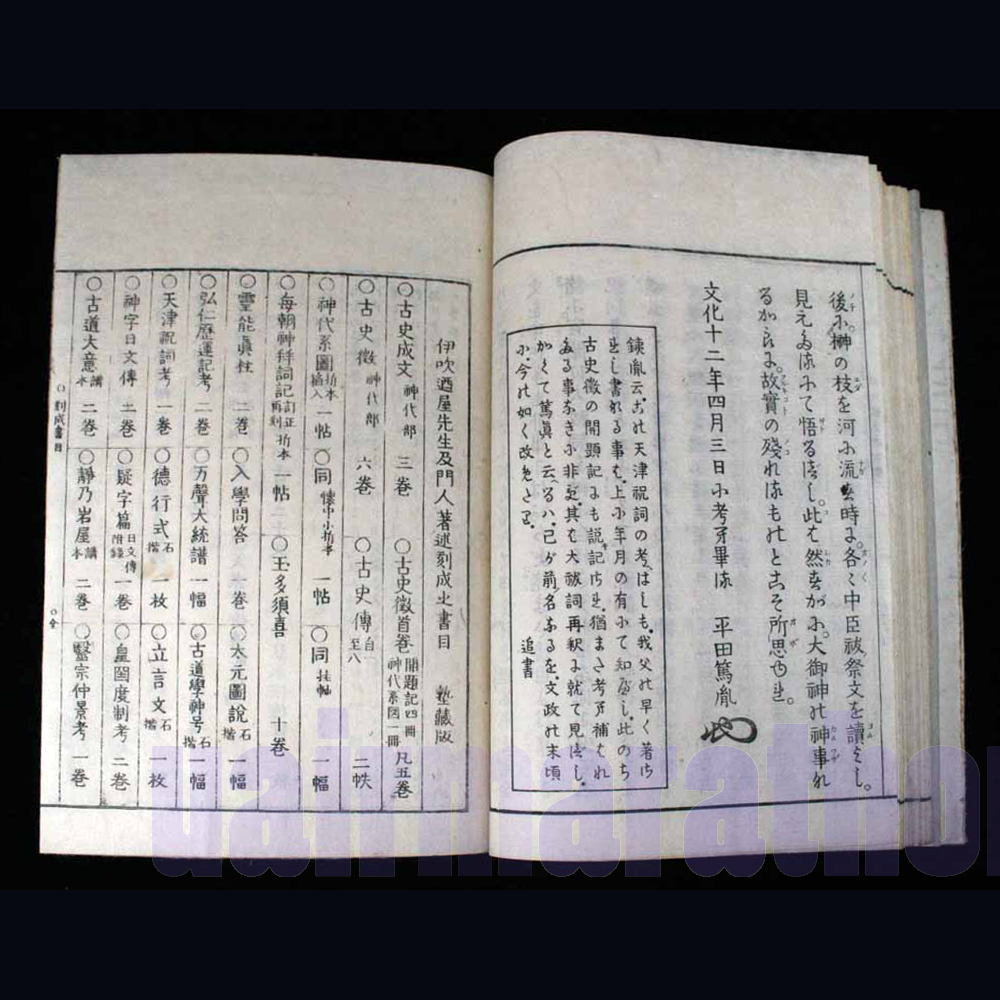 後小榊の枝を河小流す時よ。各〻中臣祓祭文を讀よし。
見えたる小て悟るべし。此も然すが小。大御神の神事の
るかなよ。故實の残れるものとこそ所思ゆれ。
文化十二年四月三日小考竟畢ぬ 平田篤胤
銕胤云。この天津祝詞の考はしも。我父の早く著は
古史徴の開題記にも説記され。猶また考へ補はれ
かくて篤眞と云るハ。己が前名なるを。文政の末頃
小。今の如く改めたり。 追書
伊吹廼屋先生及門人著述刻成之書目 塾藏版
○古史成文 神代部 三巻 ○古史徴首巻 開題記四冊 神代系図一冊 凡五巻
○古史徴 神代部 六巻 ○古史傳 自一至八 二帙
○神代系圖 折本 箱入 一帖 ○同 懐中小折本 一帖 ○同 挂軸 一幅
○毎朝神拜詞記 訂正再刻 折本 一帖 ○玉多須喜 十巻
○靈能眞柱 二巻 ○入學問答 一巻 ○太元圖説 石楷 一幅
○弘仁歴運記考 二巻 ○万聲大統譜 一幅 ○古道學神号 石楷 一幅
○天津祝詞考 一巻 ○德行式 石楷 一枚 ○立言文 石楷 一枚
○神字日文傳 二巻 ○疑字篇 日文傳附録 一巻 ○皇國度制考 二巻
○古道大意 講本 二巻 ○靜乃岩屋 講本 二巻 ○醫宗仲景考 一巻
○刻成書目 ○全